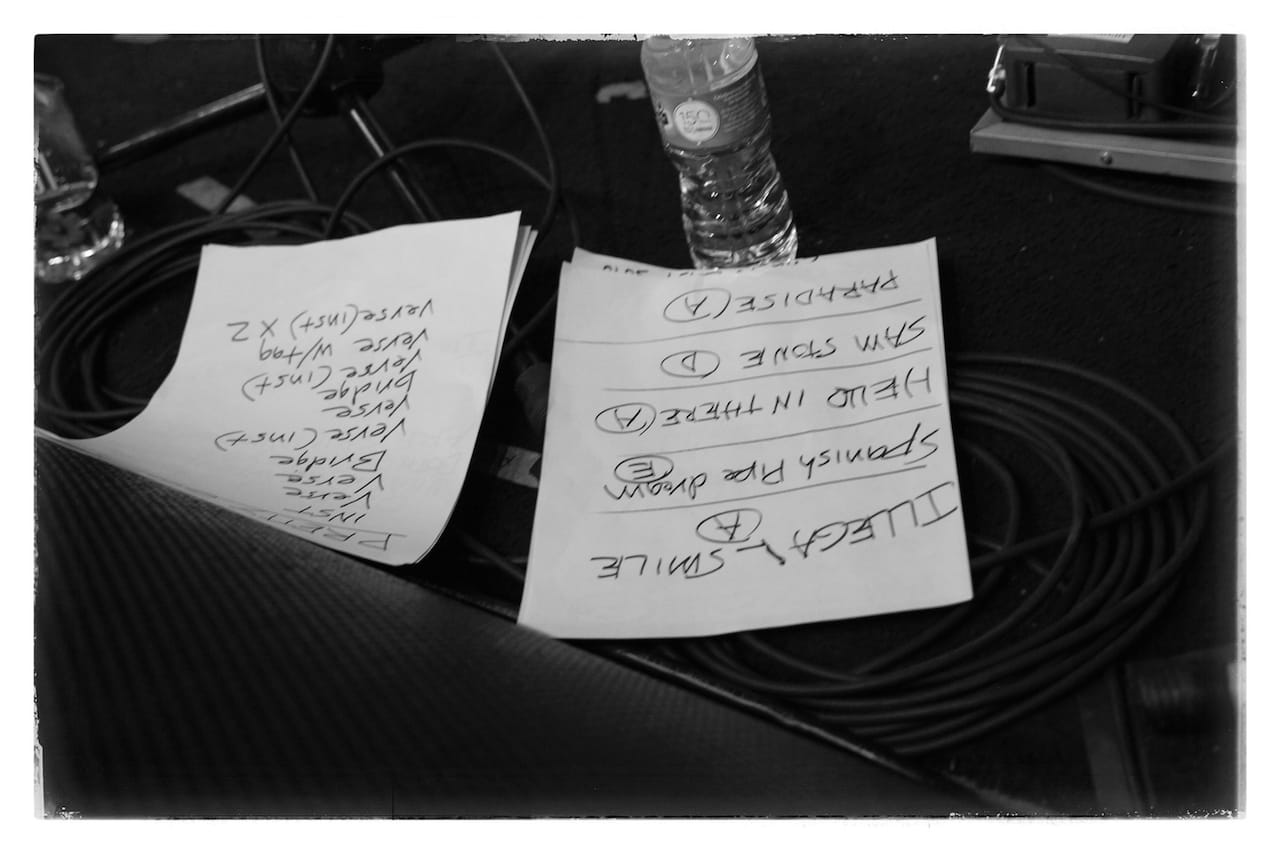 ILLEGAL SMILE
A
Spanish Pipe dream
E
HELLO IN THERE (A)
SAM STONE (D)
PARADISE (A)
INST
Verse
Verse
Bridge
Verse (inst)
Verse
Bridge
Verse (inst)
Verse w/tag
Verse (inst) X 2
150